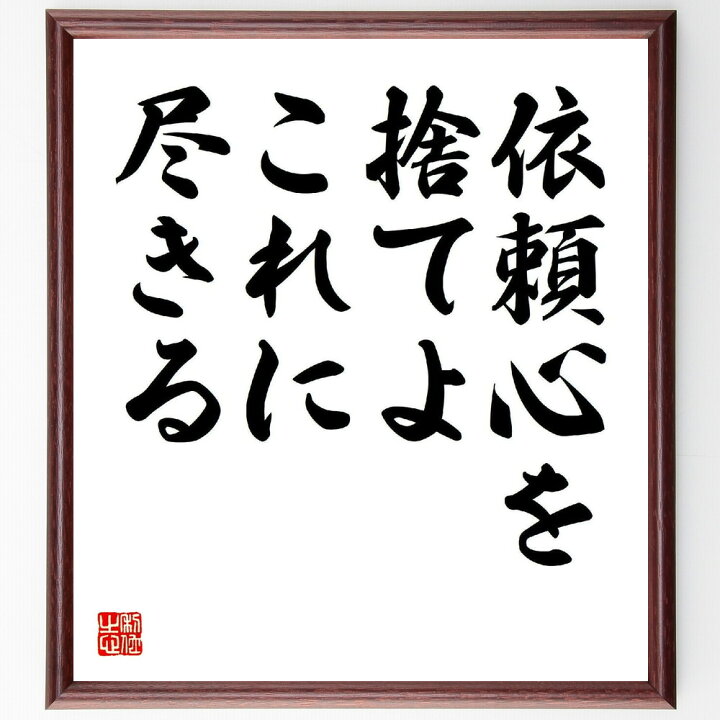 依頼心を
捨てよ
これに
尽きる